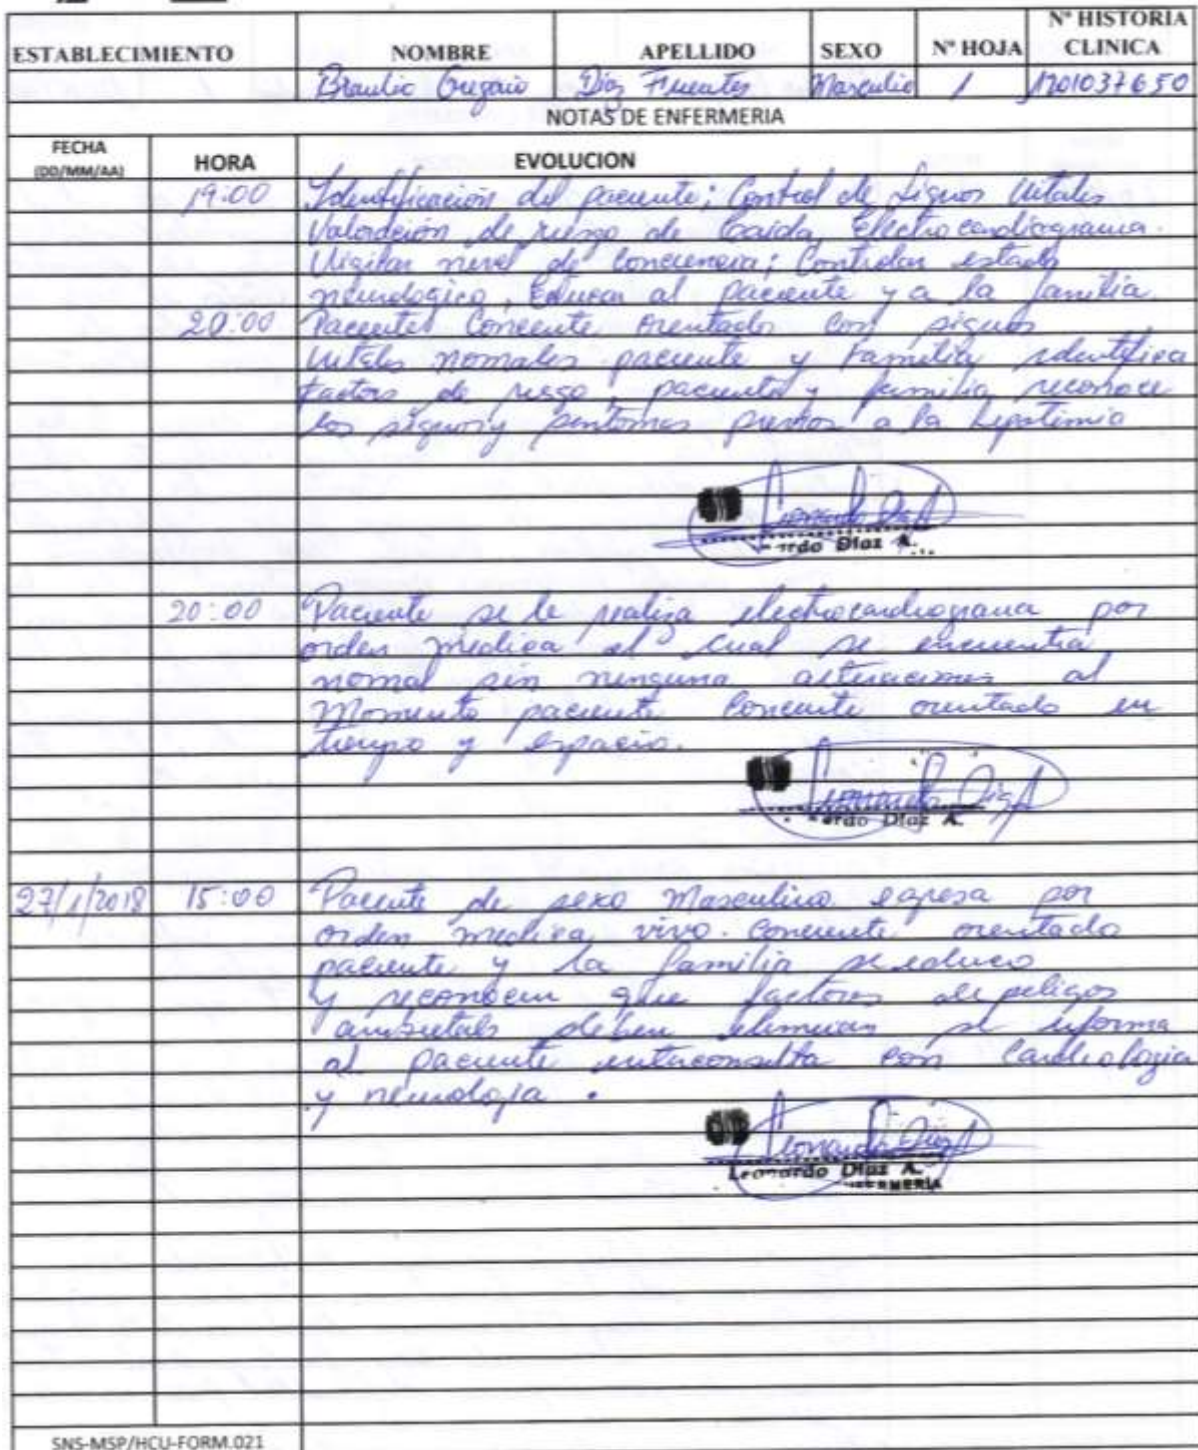 ESTABLECIMIENTO NOMBRE APELLIDO SEXO Nº HOJA Nº HISTORIA CLINICA
Braulio Gregorio Diaz Fuentes Masculio 1 1201037650
NOTAS DE ENFERMERIA
FECHA (DD/MM/AA) HORA EVOLUCION
19:00 Identificación del paciente; Control de signos vitales
Valoración de riesgo de Caida, Electrocardiograma.
Vigilar nivel de conciencia; Controlar estado
neurologico, Educar al paciente y a la familia.
20:00 Paciente Conciente orientado con signos
vitales normales paciente y familia identifica
factores de riesgo, paciente y familia reconoce
los signos y sintomas previos a la lipotimia
Leonardo Diaz A
rdo Diaz A.
20:00 Paciente se le realiza electrocardiograma por
orden medica el cual se encuentra
normal sin ninguna alteraciones al
Momento paciente Conciente orientado en
tiempo y espacio.
Leonardo Diaz A
ardo Diaz A.
27/1/2018 15:00 Paciente de sexo Masculino egresa por
orden medica, vivo. Conciente orientado
paciente y la familia se educo
y reconocen que factores de peligos
ambietals deben eliminar se informa
al paciente interconsulta con Cardiologia
y neurologia.
Leonardo Diaz A
Leonardo Diaz A.
ERMERÍA
SNS-MSP/HCU-FORM.021